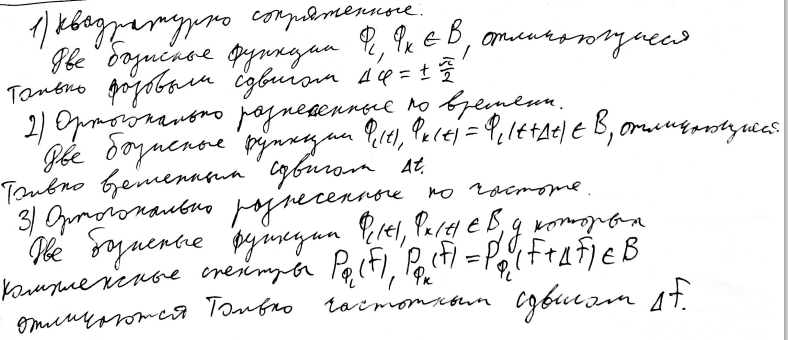 1) Квадратурно сопряженные.
Две базисные функции φᵢ, φₖ ∈ B, отличающиеся
только фазовым сдвигом Δφ = ± π/2
2) Ортогонально разнесенные по времени.
Две базисные функции φᵢ(t), φₖ(t) = φᵢ(t+Δt) ∈ B, отличающиеся
только временным сдвигом Δt.
3) Ортогонально разнесенные по частоте.
Две базисные функции φᵢ(t), φₖ(t) ∈ B, у которых
комплексные спектры P_φᵢ(f), P_φₖ(f) = P_φᵢ(f+Δf) ∈ B
отличаются только частотным сдвигом Δf.